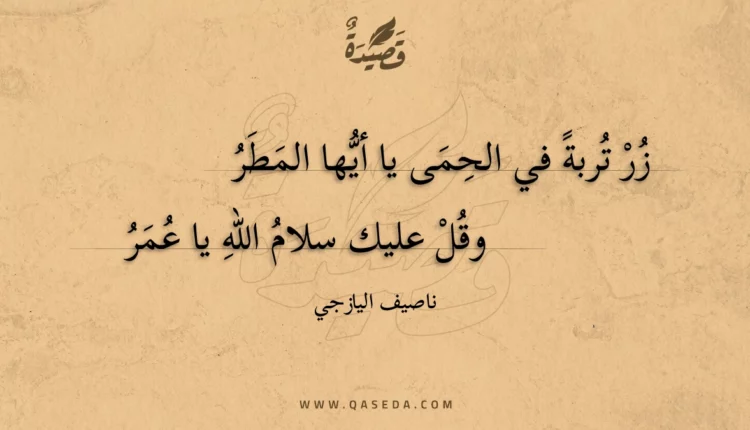 قَصِيْدَةٌ
زُرْ تُربةً في الحِمَى يا أيُّها المَطَرُ
وقُلْ عليك سلامُ اللهِ يا عُمَرُ
ناصيف اليازجي
WWW.QASEDA.COM